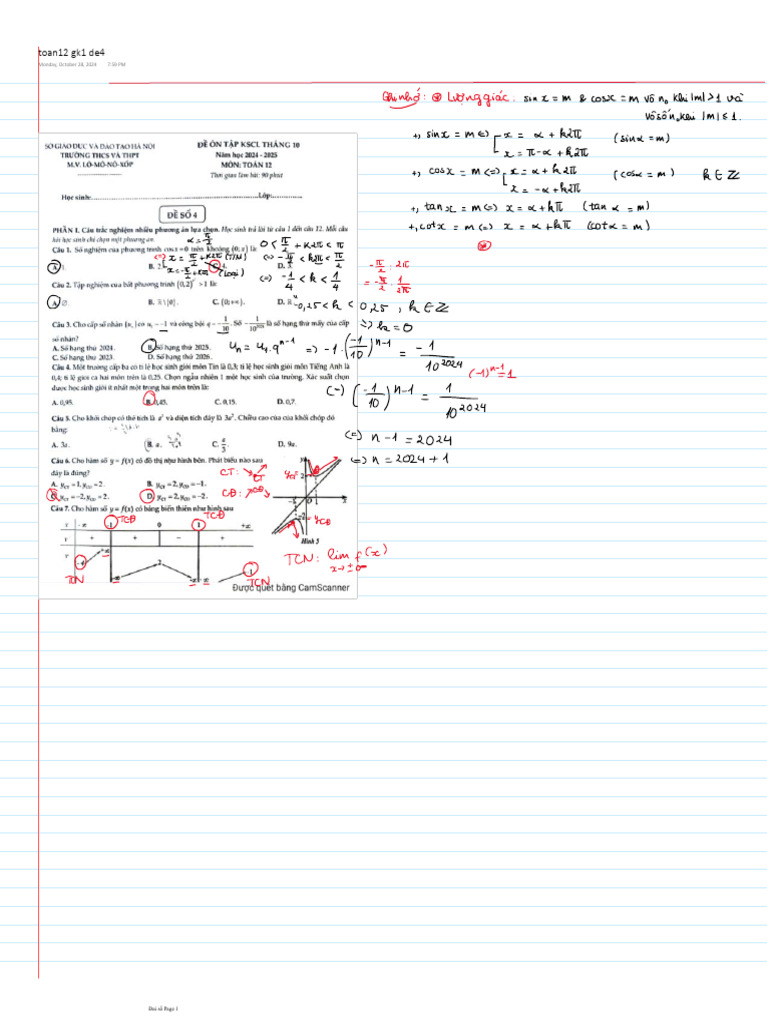 toan12 gk1 de4
Monday, October 28, 2024 7:59 PM
Ghi nhớ: ⊛ Lượng giác: sin x = m & cosx = m vô n₀ khi |m| > 1 và
vô số n₀ khi |m| ≤ 1.
+, sinx = m <=> [ x = α + k2π (sinα = m)
x = π - α + k2π
+, cosx = m <=> [ x = α + k2π (cosα = m) k ∈ ℤ
x = -α + k2π
+, tanx = m <=> x = α + kπ (tanα = m)
+, cotx = m <=> x = α + kπ (cotα = m)
SỞ GIÁO DỤC VÀ ĐÀO TẠO HÀ NỘI
TRƯỜNG THCS VÀ THPT
M.V. LÔ-MÔ-NÔ-XỐP
ĐỀ ÔN TẬP KSCL THÁNG 10
Năm học 2024 - 2025
MÔN: TOÁN 12
Thời gian làm bài: 90 phút
Học sinh: Lớp:
ĐỀ SỐ 4
PHẦN 1. Câu trắc nghiệm nhiều phương án lựa chọn. Học sinh trả lời từ câu 1 đến câu 12. Mỗi câu
hỏi học sinh chỉ chọn một phương án.
α = π/2
0 < π/2 + k2π < π
Câu 1. Số nghiệm của phương trình cos x = 0 trên khoảng (0; π) là:
<=> [ x = π/2 + k2π (TM)
x = -π/2 + k2π (loại)
<=> -π/2 < k2π < π/2
A. 1. B. 2. C. 4. D. 3.
<=> -1/4 < k < 1/4
-0,25 < k < 0,25, k ∈ ℤ
=> k = 0
-π/2 : 2π
= -π/2 . 1/2π
Câu 2. Tập nghiệm của bất phương trình (0,2)ˣ > 1 là:
A. ∅. B. ℝ\{0}. C. (0;+∞). D. ℝ.
Câu 3. Cho cấp số nhân (uₙ) có u₁ = -1 và công bội q = -1/10. Số -1/10²⁰²⁴ là số hạng thứ mấy của cấp
số nhân?
A. Số hạng thứ 2024. B. Số hạng thứ 2025.
C. Số hạng thứ 2023. D. Số hạng thứ 2026.
uₙ = u₁.qⁿ⁻¹ => -1.(-1/10)ⁿ⁻¹ = -1/10²⁰²⁴
(-1)ⁿ⁻¹ = 1
(-1/10)ⁿ⁻¹ = 1/10²⁰²⁴
<=> n-1 = 2024
<=> n = 2024 + 1
Câu 4. Một trường cấp ba có tỉ lệ học sinh giỏi môn Tin là 0,3; tỉ lệ học sinh giỏi môn Tiếng Anh là
0,4; tỉ lệ giỏi cả hai môn trên là 0,25. Chọn ngẫu nhiên 1 một học sinh của trường. Xác suất chọn
được học sinh giỏi ít nhất một trong hai môn trên là:
A. 0,95. B. 0,45. C. 0,15. D. 0,7.
Câu 5. Cho khối chóp có thể tích là a³ và diện tích đáy là 3a². Chiều cao của của khối chóp đó
bằng:
A. 3a. B. a. C. a/3. D. 9a.
Câu 6. Cho hàm số y = f(x) có đồ thị như hình bên. Phát biểu nào sau
đây là đúng?
A. y_CT = 1, y_CĐ = 2. B. y_CT = 2, y_CĐ = -1.
C. y_CT = -2, y_CĐ = 2. D. y_CT = 2, y_CĐ = -2.
CT: CT
CĐ: CĐ
y
yCT 2
-1 O 1 x
-2 = yCĐ
Hình 5
Câu 7. Cho hàm số y = f(x) có bảng biến thiên như hình sau
TCĐ TCĐ
x -∞ -1 0 1 +∞
y' + + - +
y
TCN TCN
TCN: lim f(x)
x→±∞
Được quét bằng CamScanner
Dai số Page 1